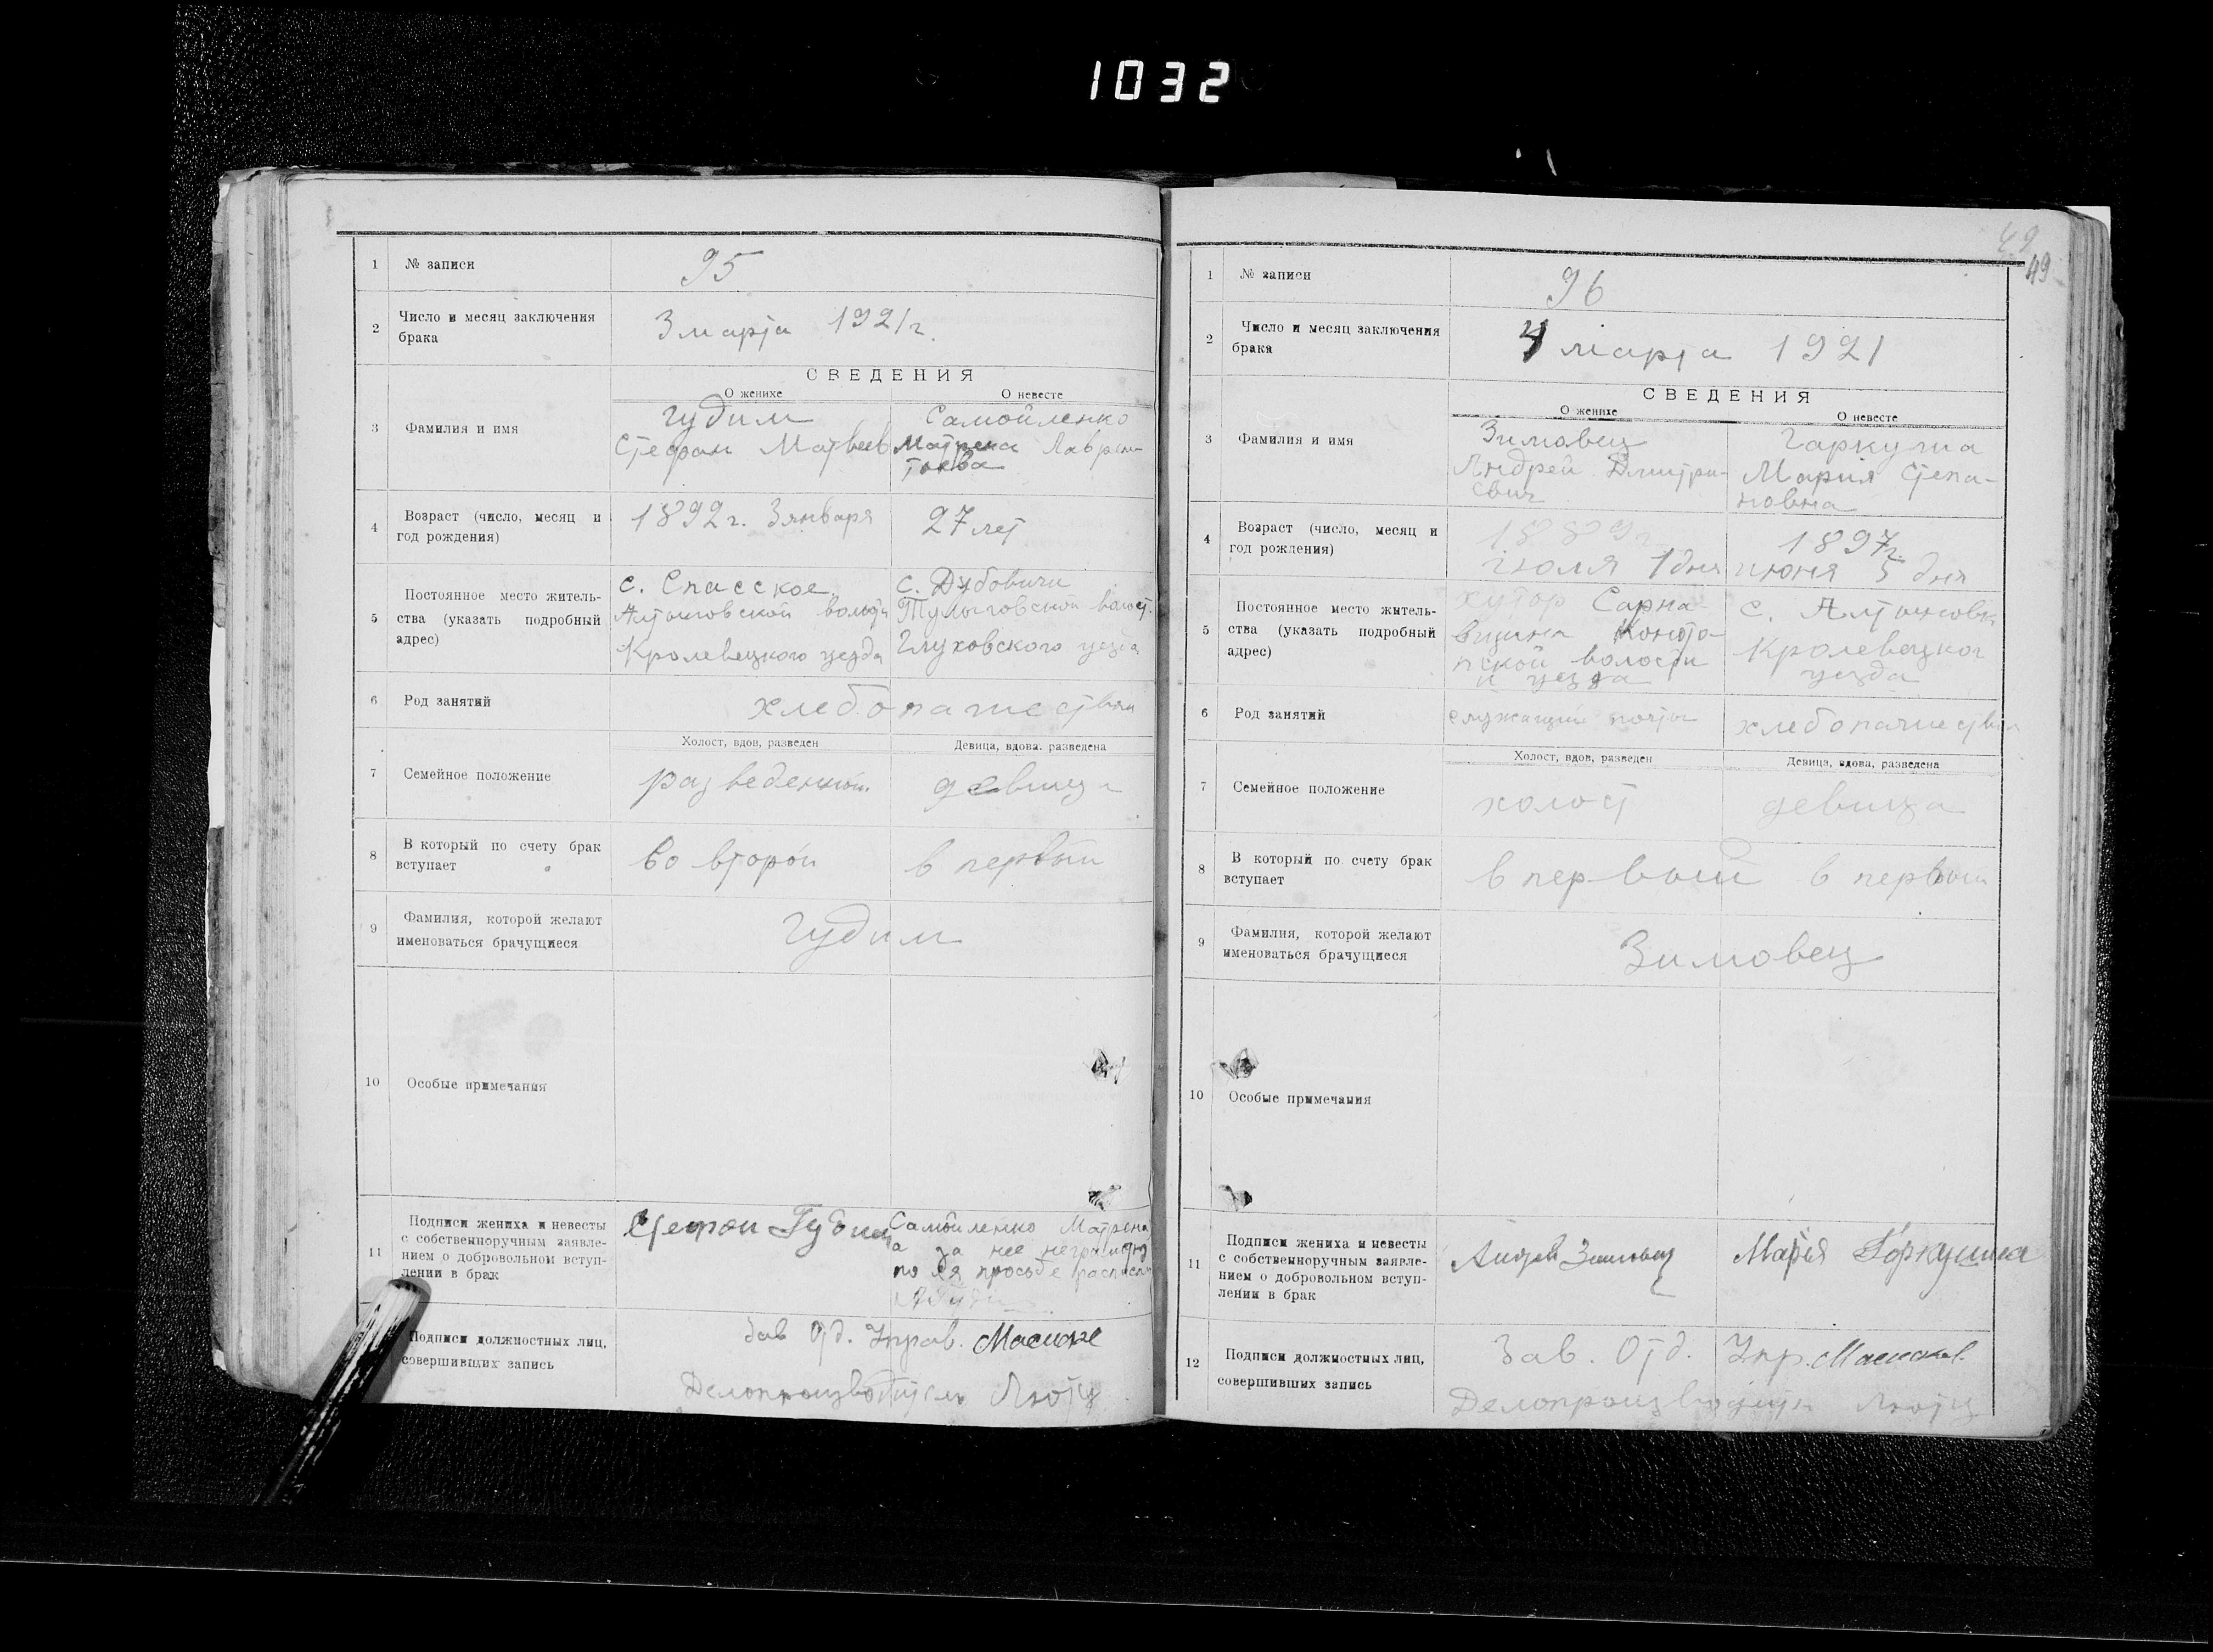 1032
1 № записи 95
2 Число и месяц заключения брака 3 марта 1921 г.
СВЕДЕНИЯ
О женихе О невесте
3 Фамилия и имя
Гудим Самойленко
Стефан Матвеев Матрена Лаврен-
тьева
4 Возраст (число, месяц и год рождения) 1892 г. 3 января 27 лет
5 Постоянное место житель-
ства (указать подробный
адрес)
с. Спасское с. Дубовичи
Алтыновской волости Тулиговской волост.
Кролевецкого уезда Глуховского уезда
6 Род занятий хлебопашеством
Холост, вдов, разведен Девица, вдова, разведена
7 Семейное положение разведенный девица
8 В который по счету брак
вступает
во второй в первый
9 Фамилия, которой желают
именоваться брачущиеся
Гудим
10 Особые примечания
11 Подписи жениха и невесты
с собственноручным заявле-
нием о добровольном вступ-
лении в брак
Стефан Гудим Самойленко Матрена
а за нее неграмотную
по ея просьбе расписался
Подписи должностных лиц,
совершивших запись
Зав Отд. Управ.
Делопроизводитель Лютц
49
49
1 № записи 96
2 Число и месяц заключения
брака
4 марта 1921
СВЕДЕНИЯ
О женихе О невесте
3 Фамилия и имя
Зимовец Гаркуша
Андрей Дмитри- Мария Степа-
евич новна
4 Возраст (число, месяц и
год рождения)
1889 г. 1897 г.
июля 1 дня июня 5 дня
5 Постоянное место житель-
ства (указать подробный
адрес)
хутор Сарна- с. Алтыновк
вщина Коното- Кролевецког
пской волости уезда
и уезда
6 Род занятий служащий почты хлебопашеством
Холост, вдов, разведен Девица, вдова, разведена
7 Семейное положение холост девица
8 В который по счету брак
вступает
в первый в первый
9 Фамилия, которой желают
именоваться брачущиеся
Зимовец
10 Особые примечания
11 Подписи жениха и невесты
с собственноручным заявле-
нием о добровольном вступ-
лении в брак
Андрей Зимовец Марія Гаркуша
12 Подписи должностных лиц,
совершивших запись
Зав. Отд. Упр.
Делопроизводитель Лютц